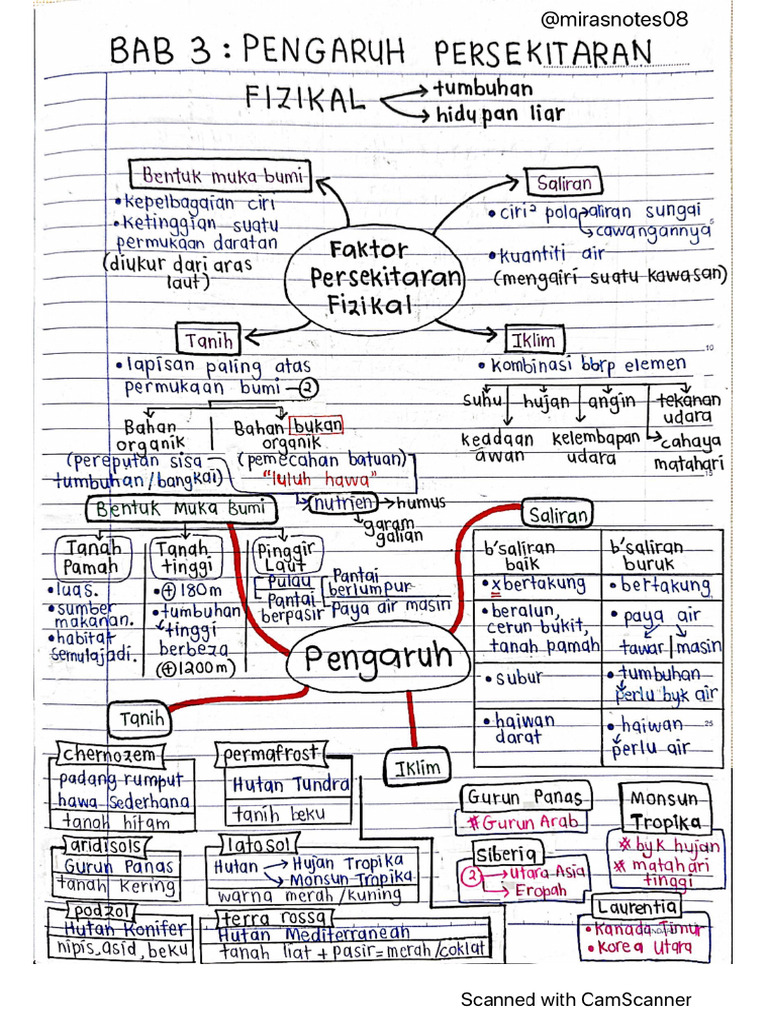 @mirasnotes08
BAB 3 : PENGARUH PERSEKITARAN
FIZIKAL → tumbuhan
→ hidupan liar
Bentuk muka bumi
• kepelbagaian ciri
• ketinggian suatu
permukaan daratan
(diukur dari aras
laut)
Saliran
• ciri² pola → aliran sungai
↳ cawangannya
• kuantiti air
(mengairi suatu kawasan)
Faktor
Persekitaran
Fizikal
Tanih
• lapisan paling atas
permukaan bumi – ②
Bahan
organik
(pereputan sisa
tumbuhan/bangkai)
Bahan bukan
organik
(pemecahan batuan)
"luluh hawa"
nutrien → humus
garam
galian
Iklim
• kombinasi bbrp elemen
suhu
hujan
angin
tekanan
udara
keadaan
awan
kelembapan
udara
cahaya
matahari
5
10
15
Bentuk Muka Bumi
Tanah
Pamah
• luas.
• sumber
makanan.
• habitat
semulajadi.
Tanah
tinggi
• ⊕ 180m
• tumbuhan
↳ tinggi
berbeza
(⊕1200m)
Pinggir
Laut
Pulau
Pantai
berpasir
Pantai
berlumpur
Paya air masin
Pengaruh
Saliran
b'saliran
baik
b'saliran
buruk
• xbertakung
• bertakung
• beralun,
cerun bukit,
tanah pamah
• paya air
tawar | masin
• subur
• tumbuhan
↳ perlu byk air
• haiwan
darat
• haiwan
↳ perlu air
25
Tanih
chernozem
padang rumput
hawa sederhana
tanah hitam
permafrost
Hutan Tundra
tanih beku
aridisols
Gurun Panas
tanah kering
latosol
Hutan → Hujan Tropika
→ Monsun Tropika
warna merah / kuning
podzol
Hutan Konifer
nipis, asid, beku
terra rossa
Hutan Mediterranean
tanah liat + pasir = merah/coklat
Iklim
Gurun Panas
# Gurun Arab
Monsun
Tropika
* byk hujan
* matahari
tinggi
Siberia
② → utara Asia
→ Eropah
Laurentia
• Kanada Timur
• Korea Utara
Scanned with CamScanner